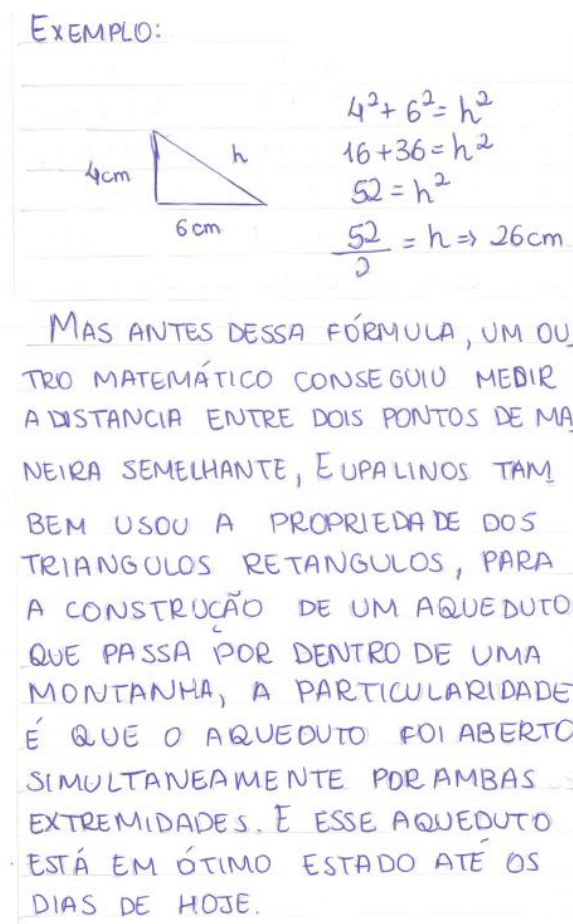 EXEMPLO:
4cm
h
6cm
4²+6²=h²
16+36=h²
52=h²
52/2 = h => 26cm
MAS ANTES DESSA FÓRMULA, UM OU
TRO MATEMÁTICO CONSEGUIU MEDIR
A DISTANCIA ENTRE DOIS PONTOS DE MA
NEIRA SEMELHANTE, EUPALINOS TAM
BEM USOU A PROPRIEDADE DOS
TRIANGULOS RETANGULOS, PARA
A CONSTRUÇÃO DE UM AQUEDUTO
QUE PASSA POR DENTRO DE UMA
MONTANHA, A PARTICULARIDADE
É QUE O AQUEDUTO FOI ABERTO
SIMULTANEAMENTE POR AMBAS
EXTREMIDADES. E ESSE AQUEDUTO
ESTÁ EM ÓTIMO ESTADO ATÉ OS
DIAS DE HOJE.